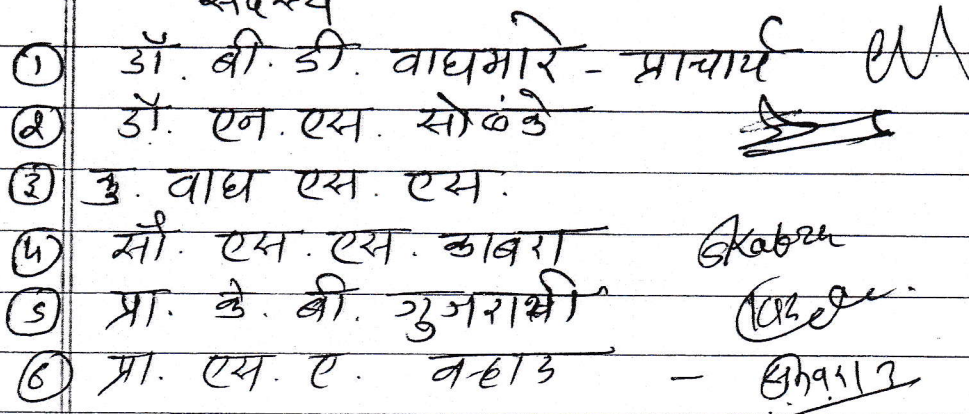 सदस्य
① डॉ. बी. डी. वाघमारे - प्राचार्य
② डॉ. एन. एस. सोळंके
③ कु. वाघ एस. एस.
④ सौ. एस. एस. काबरा Skabra
⑤ प्रा. के. बी. गुजराथी
⑥ प्रा. एस. ए. वऱ्हाडे -